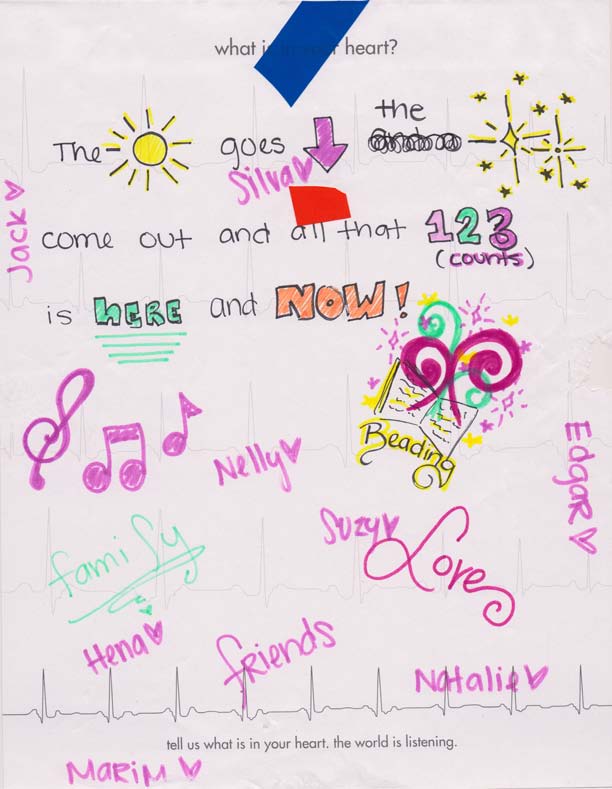 what is in your heart?
The goes the
Silva
Jack
come out and all that 123
(counts)
is HERE and NOW!
Beading
Nelly
Edgar
Suzy
family
Love
Hena
friends
Natalie
tell us what is in your heart. the world is listening.
Marim